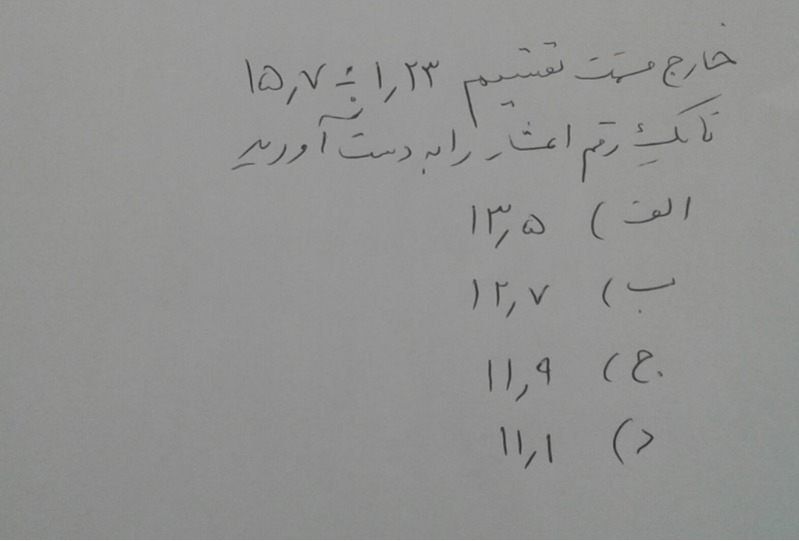 خارج قسمت تقسیم ۱۵٫۷ ÷ ۱٫۲۳
تا یک رقم اعشار را به دست آورید
الف) ۱۳٫۵
ب) ۱۲٫۷
ج) ۱۱٫۹
د) ۱۱٫۱